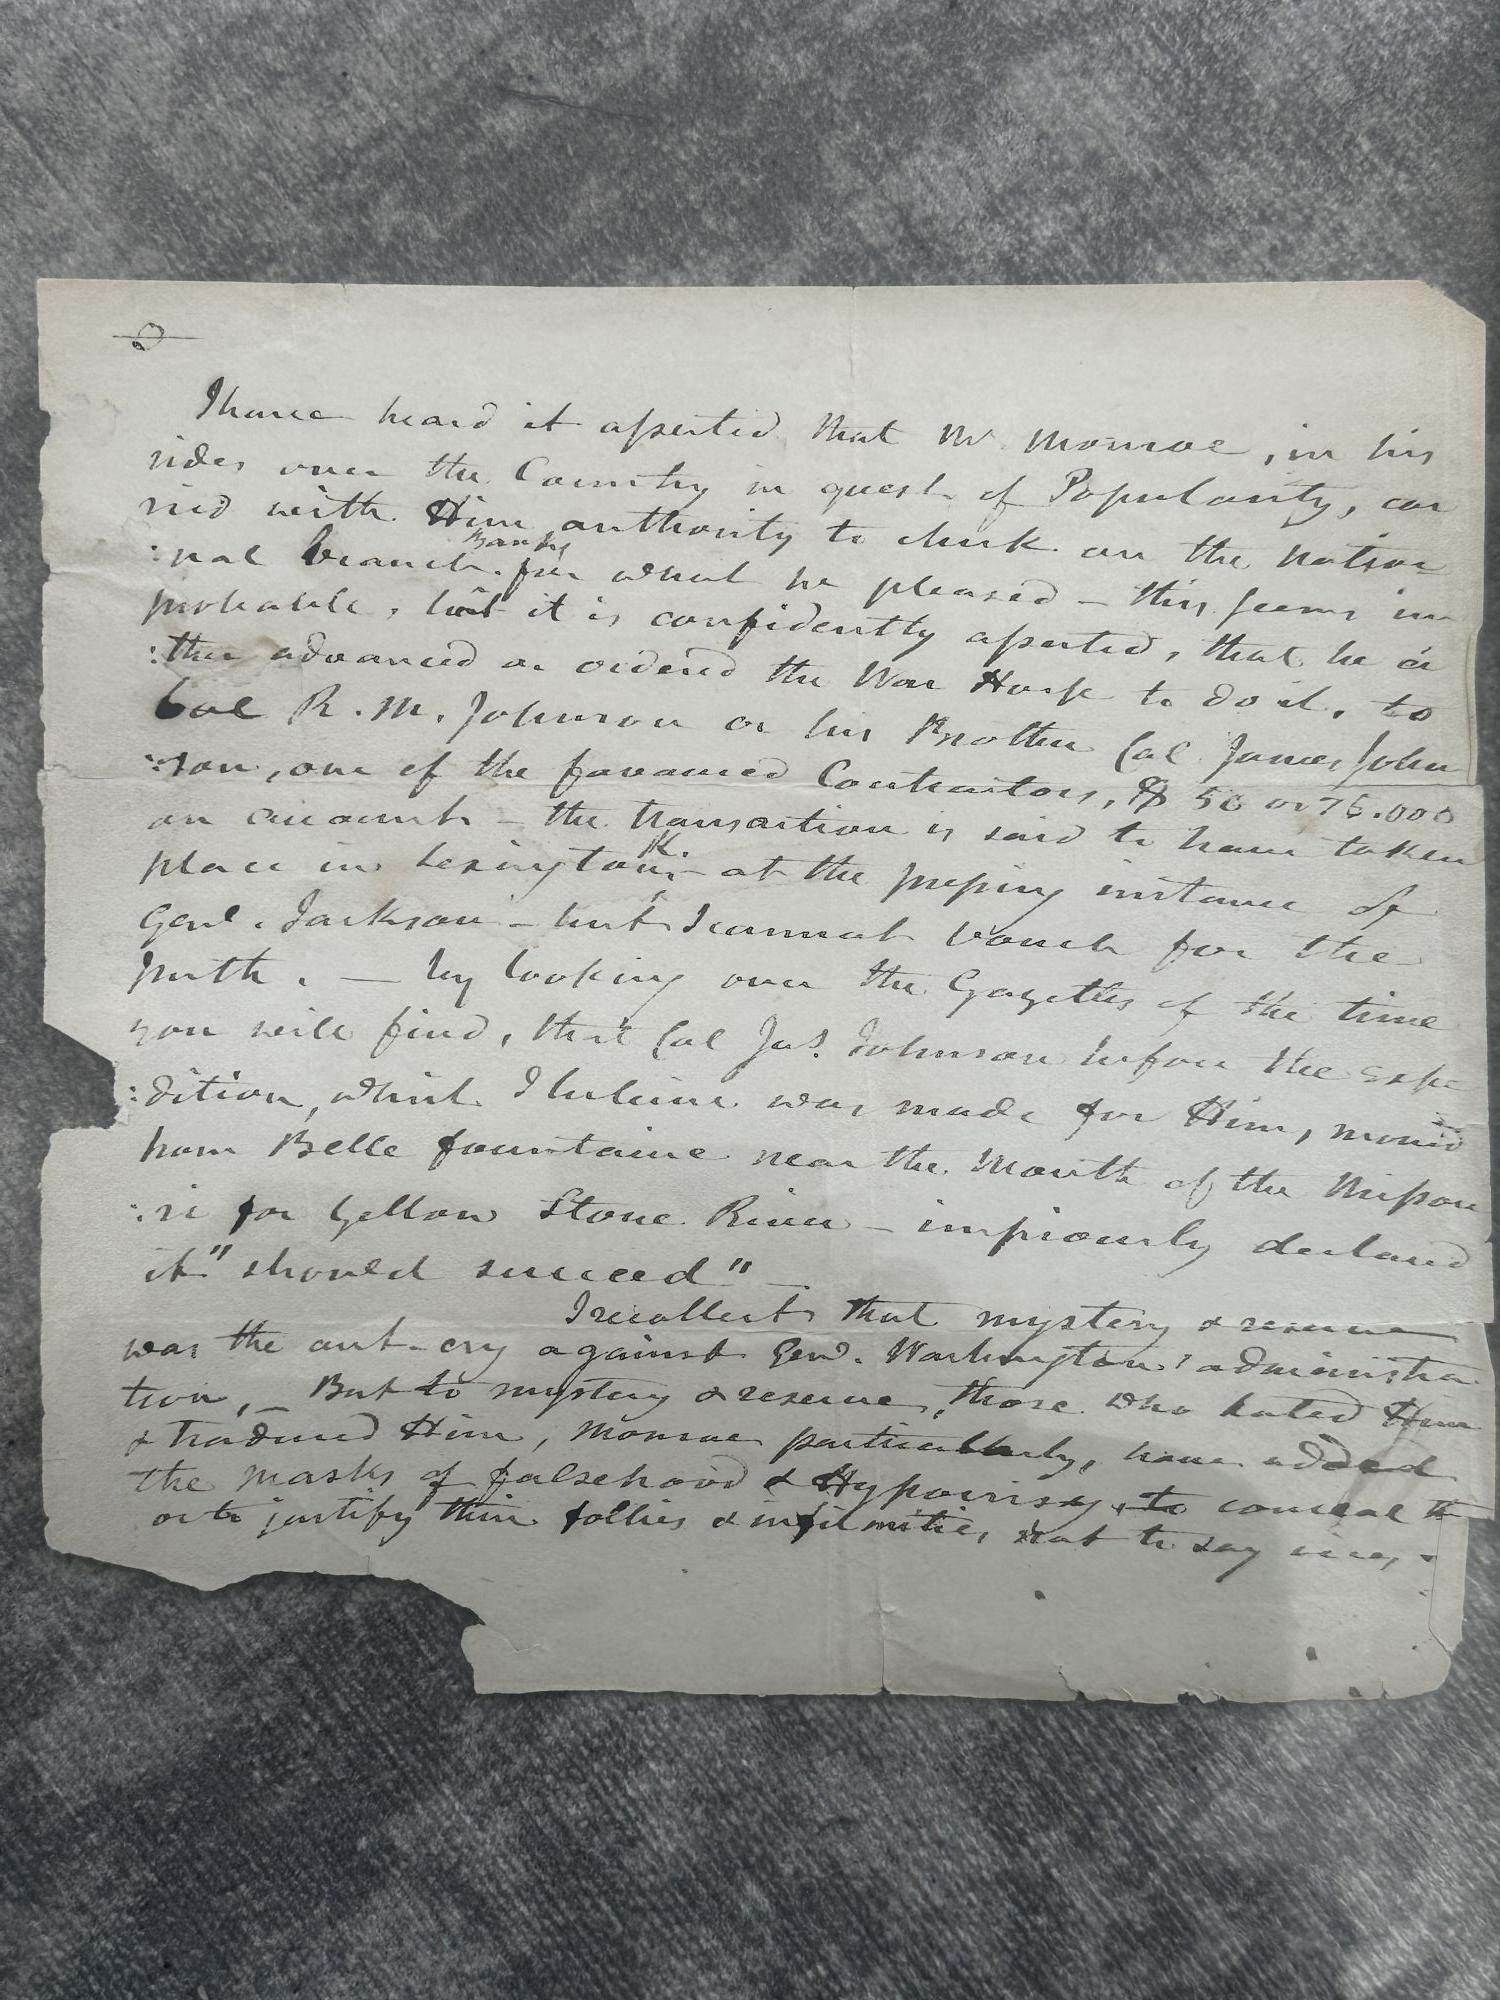 I have heard it asserted that Mr Monroe, in his
rides over the Country in quest of Popularity, car
ried with Him authority to check on the nation
:nal branch Banks for what he pleased – this seems im
probable, but it is confidently asserted, that he ei
:ther advanced or ordered the War House to do it, to
Col R. M. Johnson or his Brother Col James John
:son, one of the favoured Contractors, $ 50 or 75.000
on account – the transaction is said to have taken
place in Lexington K. – at the pressing instance of
Genl. Jackson – but I cannot vouch for the
truth. — by looking over the Gazettes of the time
you will find, that Col Jas. Johnson before the Expe
:dition, which I believe was made for Him, moved
from Belle fountaine near the Mouth of the Missou
:ri for Yellow Stone River – impiously declared
it "should succeed" –
I recollect that mystery & reserve
was the out-cry against Genl. Washington's administra
tion, – But to mystery & reserve, those who hated Him
& traduced Him, Monroe particularly, have added
the masks of falsehood & Hypocrisy, to conceal th
or to justify their follies & infirmities, not to say vices,